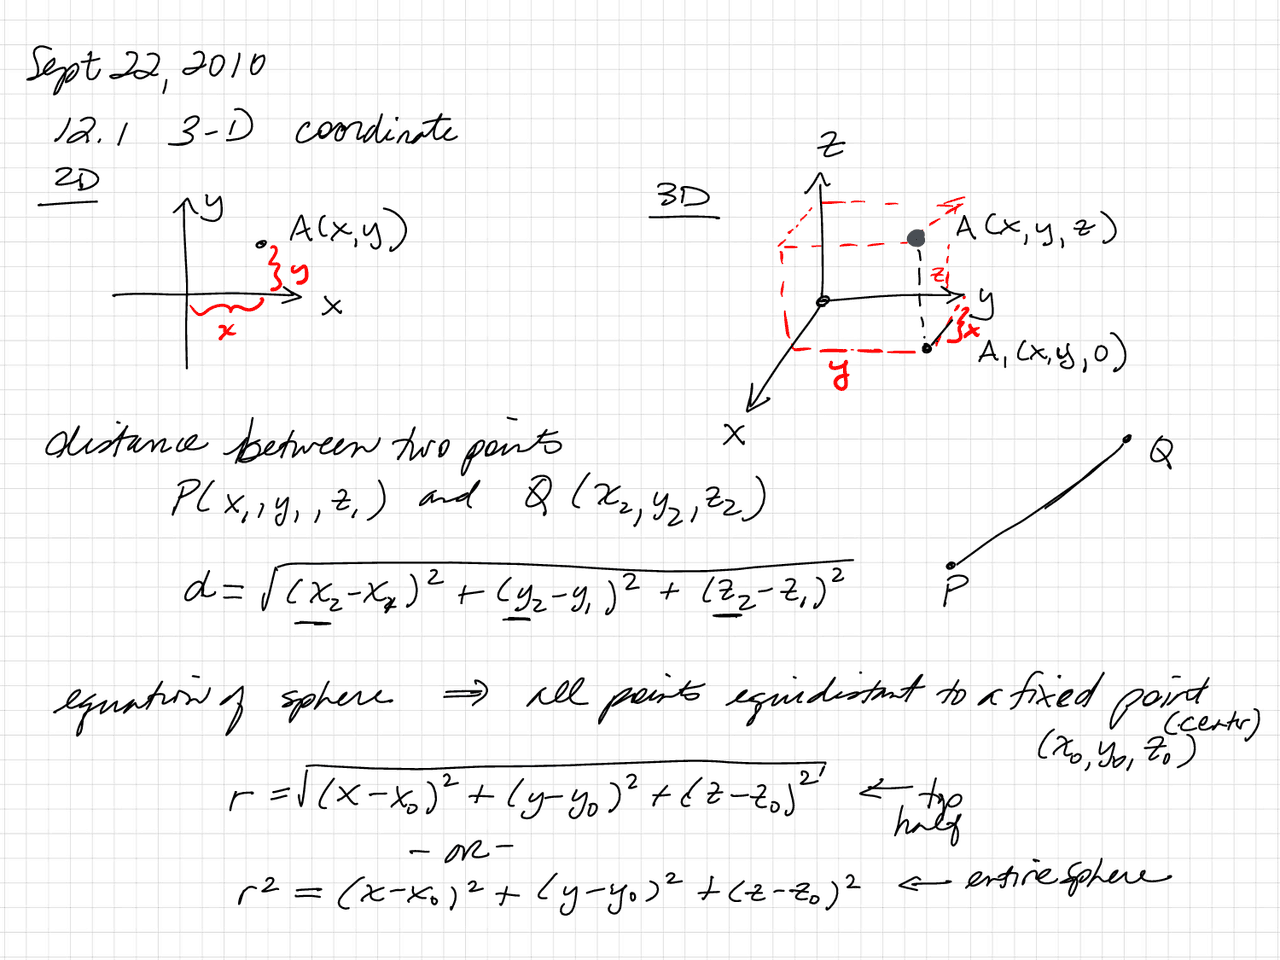 Sept 22, 2010
12.1 3-D coordinate
2D
y
A(x,y)
y
x
x
3D
z
A(x,y,z)
z
y
x
A₁(x,y,0)
y
x
distance between two points
P(x₁,y₁,z₁) and Q(x₂,y₂,z₂)
Q
P
d = √(x₂-x₁)² + (y₂-y₁)² + (z₂-z₁)²
equation of sphere ⇒ all points equidistant to a fixed point
(center)
(x₀,y₀,z₀)
r = √(x-x₀)² + (y-y₀)² + (z-z₀)² ← top
half
- OR -
r² = (x-x₀)² + (y-y₀)² + (z-z₀)² ← entire sphere